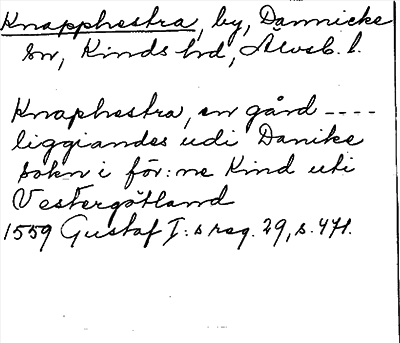 Knapphestra, by, Dannicke
sn, Kinds hd, Älvsb. l.
Knaphestra, en gård ----
liggiandes udi Danike
sokn i för:ne Kind uti
Vestergötland
1559 Gustaf I:s reg. 29, s. 471.